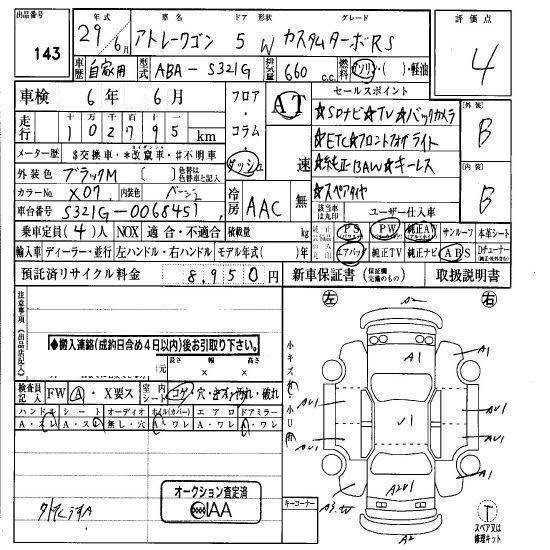 出品番号
143
年式 車名 ドア 形状 グレード
29年6月 アトレーワゴン 5 W カスタムターボRS
車歴 自家用 型式 ABA-S321G 排気量 660 c.c. 燃料 ガソリン・( )・軽油
評価点
4
車検 6年 6月
フロア・コラム・ダッシュ
AT
速
セールスポイント
★SDナビ★TV★バックカメラ
★ETC★フロントフォグライト
★純正13AW★キーレス
★スペアタイヤ
外装
B
内装
B
走行 十 万 千 百 十 一
102795 km
メーター歴 $交換車・*改竄車・#不明車
外装色 ブラックM 〔 〕 色替は色替車と記入
カラーNo X07 内装色 ベージュ
車台番号 S321G-0068451
冷房 AAC 無 該当車は丸印 ユーザー仕入車
乗車定員(4)人 NOX 適合・不適合 積載量 kg
純正 PS PW 純正AW サンルーフ 本革シート
輸入車 ディーラー・並行 左ハンドル・右ハンドル モデル年式( )年 エアバッグ 純正TV 純正ナビ ABS Dチューナー
預託済リサイクル料金 8,950円 新車保証書 (保証継続可のもの) 取扱説明書
注意事項(出品店記入)
◆搬入連絡(成約日含め4日以内)後お引取り下さい。
長さ 幅 高さ
× ×
左 右
小キズ有
小U有
A2
A1
A1
AU1
AU1
√1
AU1
AU1
A1
A2U1
A2
検査員記入 FW A・X要ス 室内シート コゲ・穴・キズ・汚れ・破れ
ハンドル シート オーディオ ホイル(カバー) エアロ ドアミラー
A・スレ A・スレ 無し・穴 A・ワレ A・ワレ A・ワレ
外タイヤうすA
オークション査定済
IAA
キーコーナー
T
スペア又は修理キット